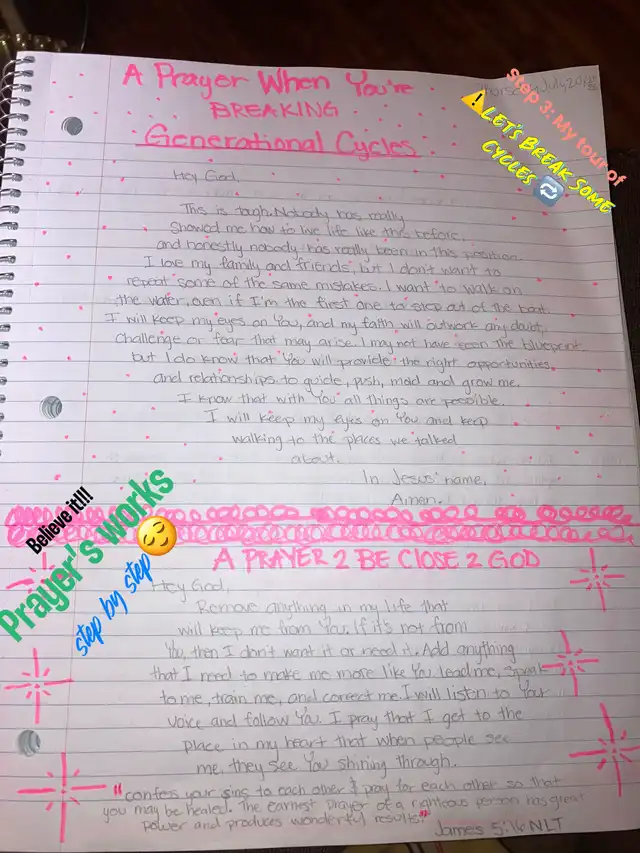 A Prayer When You're
BREAKING
Generational Cycles
Step 3: My tour of
⚠️LET'S BREAK SOME
CYCLES 🔄
Hey God,
This is tough. Nobody has really
showed me how to live life like this before,
and honestly nobody has really been in this position.
I love my family and friends, but I don't want to
repeat some of the same mistakes. I want to walk on
the water, even if I'm the first one to step out of the boat.
I will keep my eyes on You, and my faith will outwork any doubt,
challenge or fear that may arise. I may not have seen the blueprint
but I do know that You will provide the right opportunities
and relationships to guide, push, mold and grow me.
I know that with You all things are possible.
I will keep my eyes on You and keep
walking to the places we talked
about.
In Jesus' name,
Amen.
Believe it!!!
Prayer's works
step by step
A PRAYER 2 BE CLOSE 2 GOD
Hey God,
Remove anything in my life that
will keep me from You. If it's not from
You, then I don't want it or need it. Add anything
that I need to make me more like You. Lead me, speak
to me, train me, and correct me. I will listen to Your
voice and follow You. I pray that I get to the
place in my heart that when people see
me, they see You shining through.
"confess your sins to each other & pray for each other so that
you may be healed. The earnest prayer of a righteous person has great
power and produces wonderful results" James 5:16 NLT